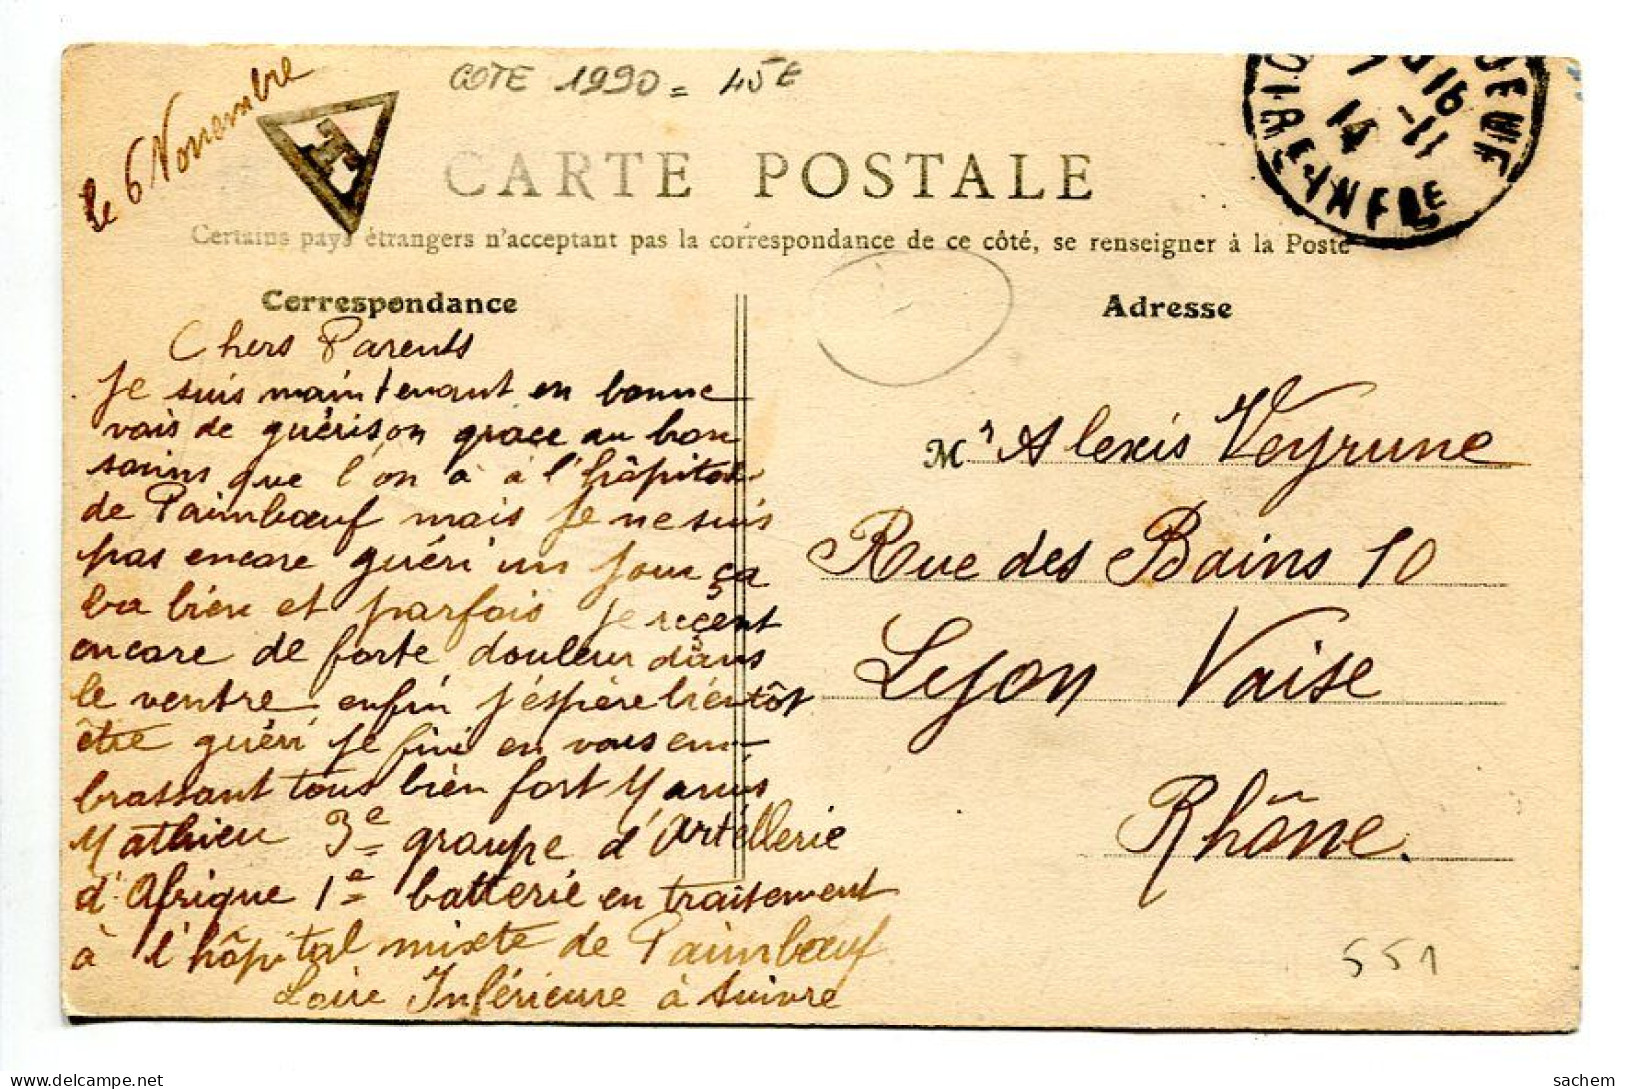 le 6 Novembre
COTE 1990 = 45€
T
CARTE POSTALE
Certains pays étrangers n'acceptent pas la correspondance de ce côté, se renseigner à la Poste
LOIRE-INFRE
16 -11
14
Correspondance
Chers Parents
Je suis maintenant en bonne
vois de guérison grace au bon
soins que l'on à à l'hôpital
de Paimbœuf mais je ne suis
pas encore guéri un jour ça
va bien et parfois je reçent
encore de forte douleur dans
le ventre enfin j'éspère bientôt
être guéri je fini en vous em-
brassant tous bien fort Marius
Mathieu 3e groupe d'Artellerie
d'Afrique 1e batterie en traitement
à l'hôpital mixte de Paimbœuf
Loire Inférieure à suivre
Adresse
Mr Alexis Veyrune
Rue des Bains 10
Lyon Vaise
Rhône.
551
delcampe.net
sachem